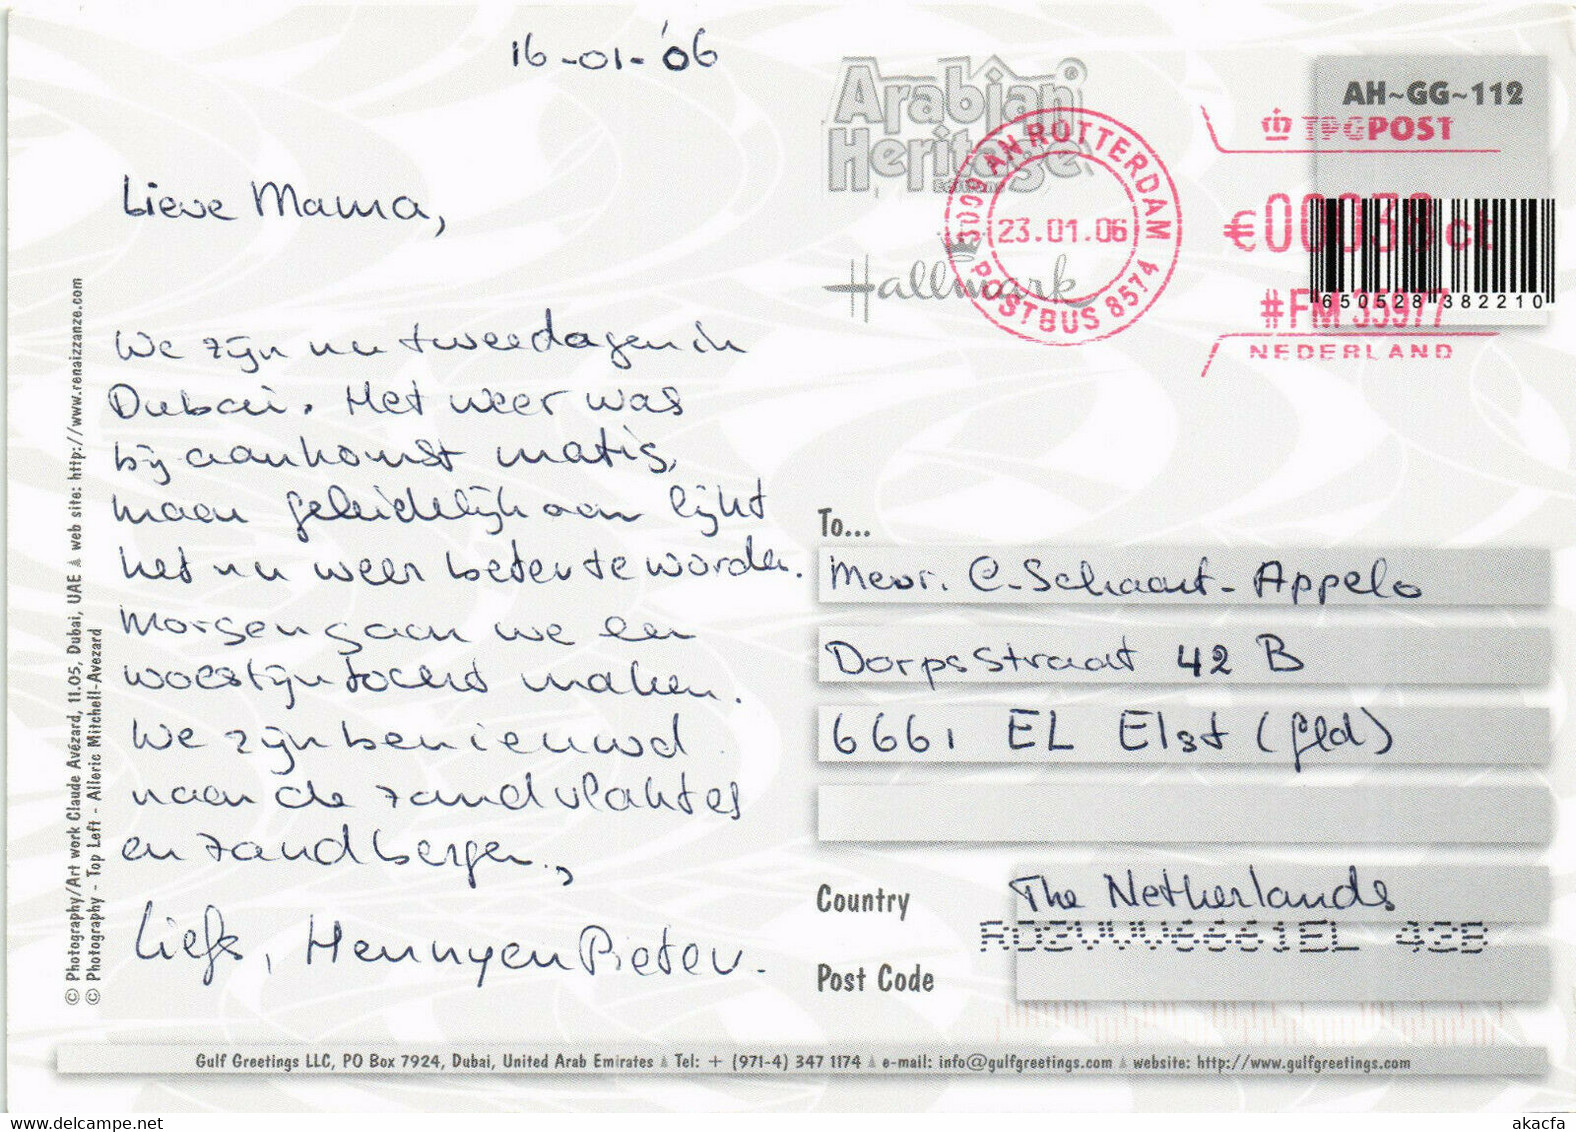 16-01-'06
Lieve Mama,
We zijn nu twee dagen in
Dubai. Het weer was
bij aankomst matig,
maar geleidelijk aan lijkt
het nu weer beter te worden.
Morgen gaan we een
woestijntocht maken.
We zijn benieuwd
naar de zandvlaktes
en zandbergen.,
Liefs, Henny en Pieter.
© Photography/Art work Claude Avézard, 11.05, Dubai, UAE ▲ web site: http://www.renaizzanze.com
© Photography - Top Left - Alleric Mitchell-Avezard
Arabian®
Heritage
Hallmark
3009 AN ROTTERDAM
23.01.06
POSTBUS 8574
AH~GG~112
TPG POST
€00038 ct
6 50528 38221 0
#FM 35977
NEDERLAND
To...
Mevr. C. Schaart-Appelo
Dorpsstraat 42 B
6661 EL Elst (gld)
Country
The Netherlands
RD2VVV6661EL 42B
Post Code
Gulf Greetings LLC, PO Box 7924, Dubai, United Arab Emirates ▲ Tel: + (971-4) 347 1174 ▲ e-mail: info@gulfgreetings.com ▲ website: http://www.gulfgreetings.com
www.delcampe.net
akacfa